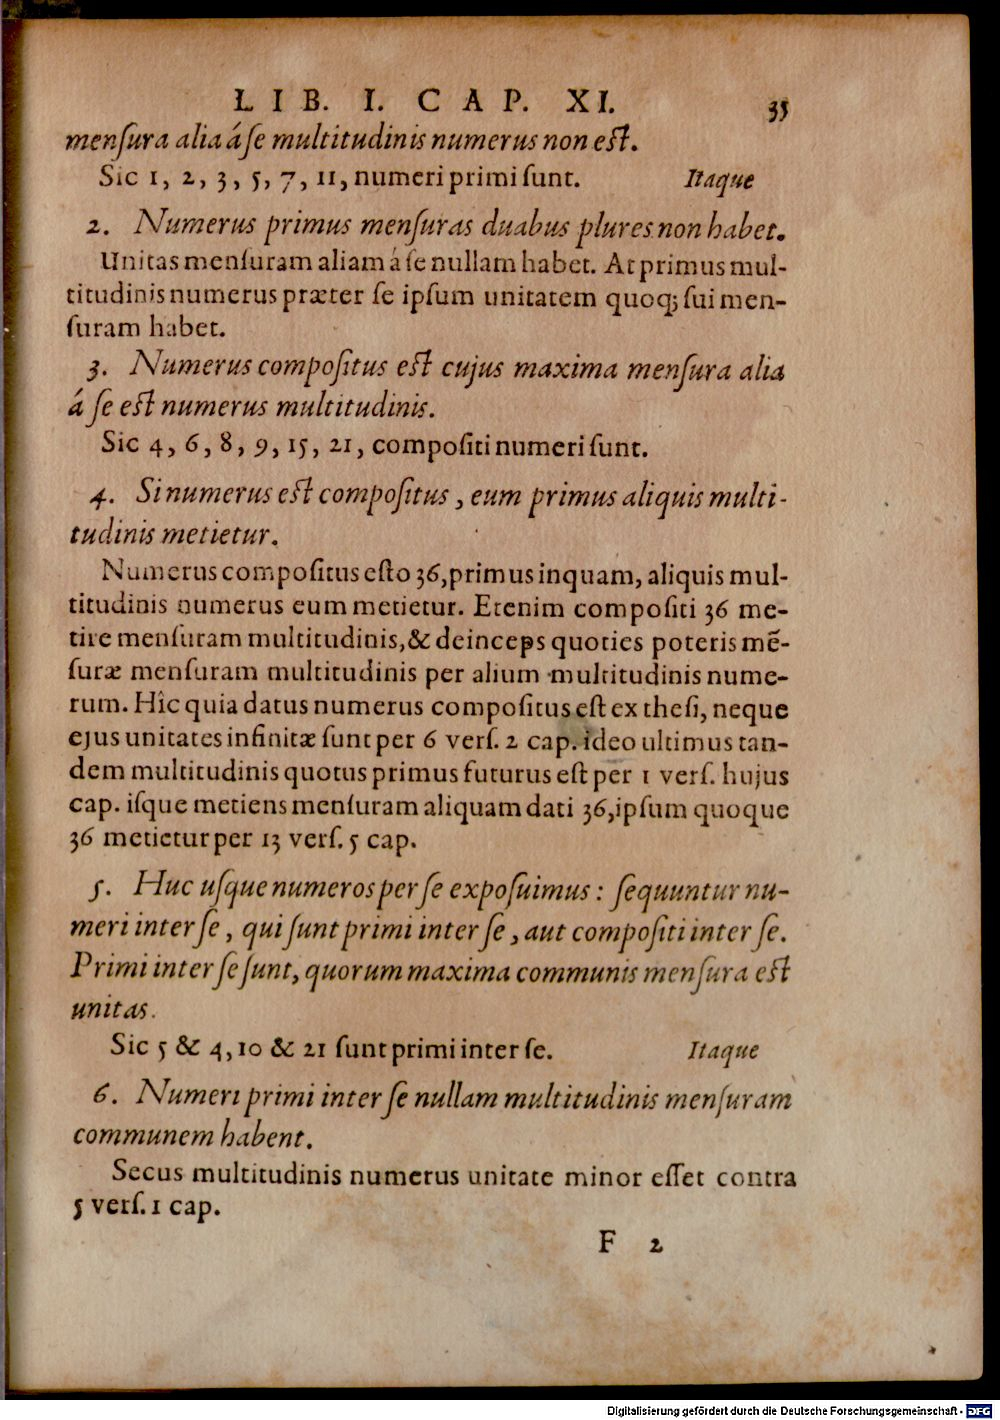 LIB. I. CAP. XI. 35
menſura alia á ſe multitudinis numerus non eſt.
Sic 1, 2, 3, 5, 7, 11, numeri primi ſunt. Itaque
2. Numerus primus menſuras duabus plures non habet.
Unitas menſuram aliam á ſe nullam habet. At primus mul-
titudinis numerus præter ſe ipſum unitatem quoq; ſui men-
ſuram habet.
3. Numerus compoſitus eſt cujus maxima menſura alia
á ſe eſt numerus multitudinis.
Sic 4, 6, 8, 9, 15, 21, compoſiti numeri ſunt.
4. Si numerus eſt compoſitus, eum primus aliquis multi-
tudinis metietur.
Numerus compoſitus eſto 36, primus inquam, aliquis mul-
titudinis numerus eum metietur. Etenim compoſiti 36 me-
tire menſuram multitudinis, & deinceps quoties poteris mẽ-
ſuræ menſuram multitudinis per alium multitudinis nume-
rum. Hîc quia datus numerus compoſitus eſt ex theſi, neque
ejus unitates infinitæ ſunt per 6 verſ. 2 cap. ideo ultimus tan-
dem multitudinis quotus primus futurus eſt per 1 verſ. hujus
cap. iſque metiens menſuram aliquam dati 36, ipſum quoque
36 metietur per 13 verſ. 5 cap.
5. Huc uſque numeros per ſe expoſuimus: ſequuntur nu-
meri inter ſe, qui ſunt primi inter ſe, aut compoſiti inter ſe.
Primi inter ſe ſunt, quorum maxima communis menſura eſt
unitas.
Sic 5 & 4, 10 & 21 ſunt primi inter ſe. Itaque
6. Numeri primi inter ſe nullam multitudinis menſuram
communem habent.
Secus multitudinis numerus unitate minor eſſet contra
5 verſ. 1 cap.
F 2
Digitalisierung gefördert durch die Deutsche Forschungsgemeinschaft - DFG